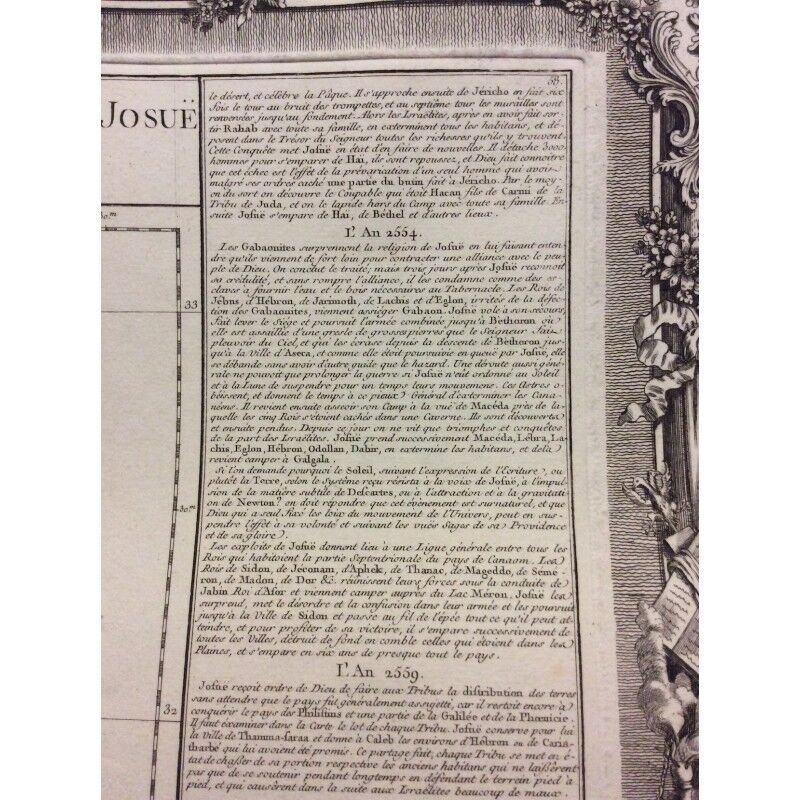 38.
JOSUË
le désert, et célébre la Pâque. Il s'approche ensuite de Jéricho en fait six
fois le tour au bruit des trompettes, et au septième tour les murailles sont
renversées jusqu'au fondement. Alors les Israélites, après en avoir fait sor-
tir Rahab avec toute sa famille, en exterminent tous les habitans, et dé-
posent dans le Trésor du Seigneur toutes les richesses qu'ils y trouvent.
Cette Conquête met Josué en état d'en faire de nouvelles. Il détache 3000.
hommes pour s'emparer de Hai, ils sont repoussez, et Dieu fait connoitre
que cet échec est l'effet de la prévarication d'un seul homme qui avoit
malgré ses ordres caché une partie du butin fait à Jéricho. Par le moy-
en du sort on découvre le Coupable qui étoit Hacan fils de Carmi de la
Tribu de Juda, et on le lapide hors du Camp avec toute sa famille. En-
suite Josué s'empare de Hai, de Béthel et d'autres lieux.
L'An 2554.
Les Gabaonites surprennent la religion de Josué en lui faisant enten-
dre qu'ils viennent de fort loin pour contracter une alliance avec le peu-
ple de Dieu. On conclut le traité; mais trois jours après Josué reconnoit
sa crédulité, et sans rompre l'alliance, il les condamne comme des es-
claves à fournir l'eau et le bois nécessaires au Tabernacle. Les Rois de
Jébus, d'Hébron, de Jarimoth, de Lachis et d'Eglon, irrités de la défec-
tion des Gabaonites, viennent assiéger Gabaon. Josué vole à son secours,
fait lever le Siége et poursuit l'armée combinée jusqu'à Béthoron où
elle est assaillie d'une gresle de grosses pierres que le Seigneur fait
pleuvoir du Ciel, et qui les écrase depuis la descente de Bétheron jus-
qu'à la Ville d'Aseca, et comme elle étoit poursuivie en queue par Josué, elle
se débande sans avoir d'autre guide que le hazard. Une déroute aussi géné-
rale ne pouvoit que prolonger la guerre si Josué n'eût ordonné au Soleil
et à la Lune de suspendre pour un temps leurs mouvemens. Ces Astres o-
béissent, et donnent le temps à ce pieux Général d'exterminer les Cana-
néens. Il revient ensuite asseoir son Camp à la vue de Macéda près de la-
quelle les cinq Rois s'étoient cachés dans une Caverne. Ils sont découverts
et ensuite pendus. Depuis ce jour on ne vit que triomphes et conquêtes
de la part des Israélites. Josué prend successivement Macéda, Lébra, La-
chis, Eglon, Hébron, Odollan, Dabir, en extermine les habitans, et delà
revient camper à Galgala.
Si l'on demande pourquoi le Soleil, suivant l'expression de l'Ecriture, ou
plutôt la Terre, selon le Système reçu résista à la voix de Josué, à l'impul-
sion de la matière subtile de Descartes, ou à l'attraction et à la gravitati-
on de Newton? on doit répondre que cet évènement est surnaturel, et que
Dieu qui a seul fixé les loix du mouvement de l'Univers, peut en sus-
pendre l'effet à sa volonté et suivant les vuës Sages de sa Providence
et de sa gloire.
Les exploits de Josué donnent lieu à une Ligue générale entre tous les
Rois qui habitoient la partie Septentrionale du pays de Canaam. Les
Rois de Sidon, de Jéconam, d'Aphek, de Thanac, de Mageddo, de Sémé-
ron, de Madon, de Dor &c. réunissent leurs forces sous la conduite de
Jabin Roi d'Asor et viennent camper auprès du Lac Méron. Josué les
surprend, met le désordre et la confusion dans leur armée et les poursuit
jusqu'à la Ville de Sidon et passe au fil de l'épée tout ce qu'il peut at-
teindre, et pour profiter de sa victoire, il s'empare successivement de
toutes les Villes, détruit de fond en comble celles qui étoient dans les
Plaines, et s'empare en six ans de presque tout le pays.
L'An 2559.
Josué reçoit ordre de Dieu de faire aux Tribus la distribution des terres
sans attendre que le pays fut généralement assujetti, car il restoit encore à
conquérir le pays des Philistins et une partie de la Galilée et de la Phœnicie.
Il faut éxaminer dans la Carte le lot de chaque Tribu. Josué conserve pour lui
la Ville de Thamma-saraa et donne à Caleb les environs d'Hébron ou de Caria-
tharbé qui lui avoient été promis. Ce partage fait, chaque Tribu se met en é-
tat de chasser de sa portion respective les anciens habitans qui ne laissèrent
pas que de se soutenir pendant longtemps en défendant le terrein pied à
pied, et qui causèrent dans la suite aux Israélites beaucoup de maux.
30.m
33
30.m
32